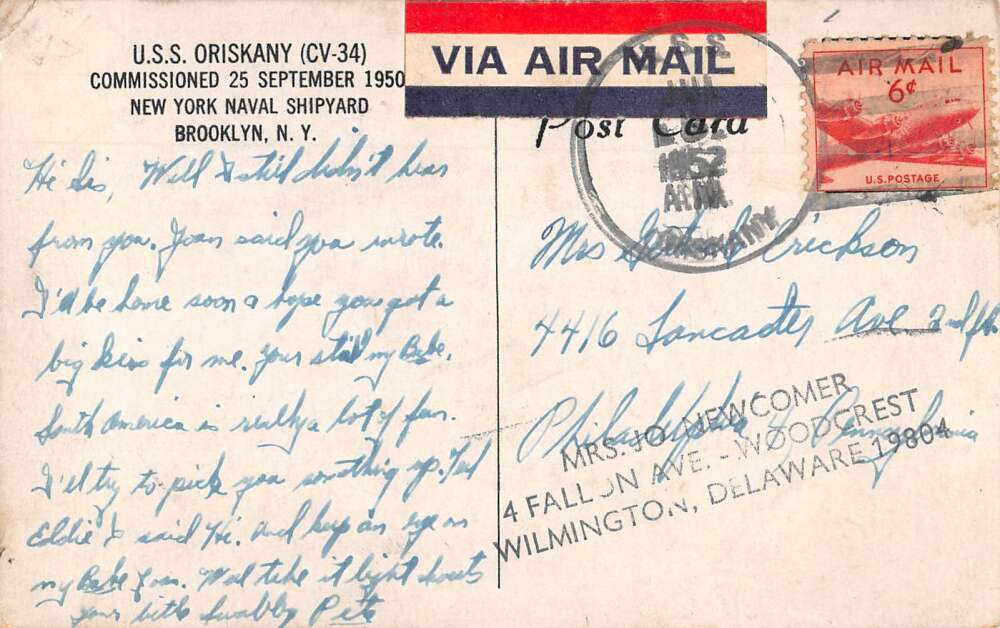 U.S.S. ORISKANY (CV-34)
COMMISSIONED 25 SEPTEMBER 1950
NEW YORK NAVAL SHIPYARD
BROOKLYN, N. Y.
VIA AIR MAIL
Post Card
U.S.S.
1952
ORISKANY
AIR MAIL
6¢
U.S. POSTAGE
Hi Sis, Well I still didn't hear
from you. Joan said you wrote.
I'll be home soon & hope you got a
big kiss for me. Your still my Babe.
South America is really a lot of fun.
I'll try to pick you something up. Tell
Eddie I said Hi. And keep an eye on
my Babe Joan. Well take it light
your little Swabby Pete
Mrs Erickson
4416 Lancaster Ave 2nd flr
Philadelphia, Pennsylvania
MRS. JO NEWCOMER
4 FALLON AVE. - WOODCREST
WILMINGTON, DELAWARE 19804